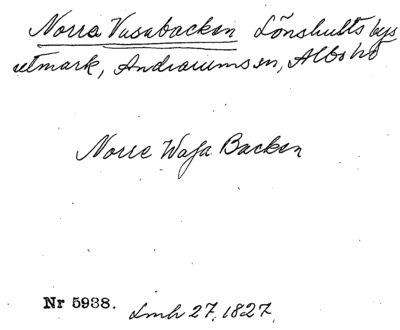 Norra Vasabacken Lönshults bys
utmark, Andrarums sn, Albo hd
Norre Wasa Backen
Nr 5938. Lmh 27, 1827.